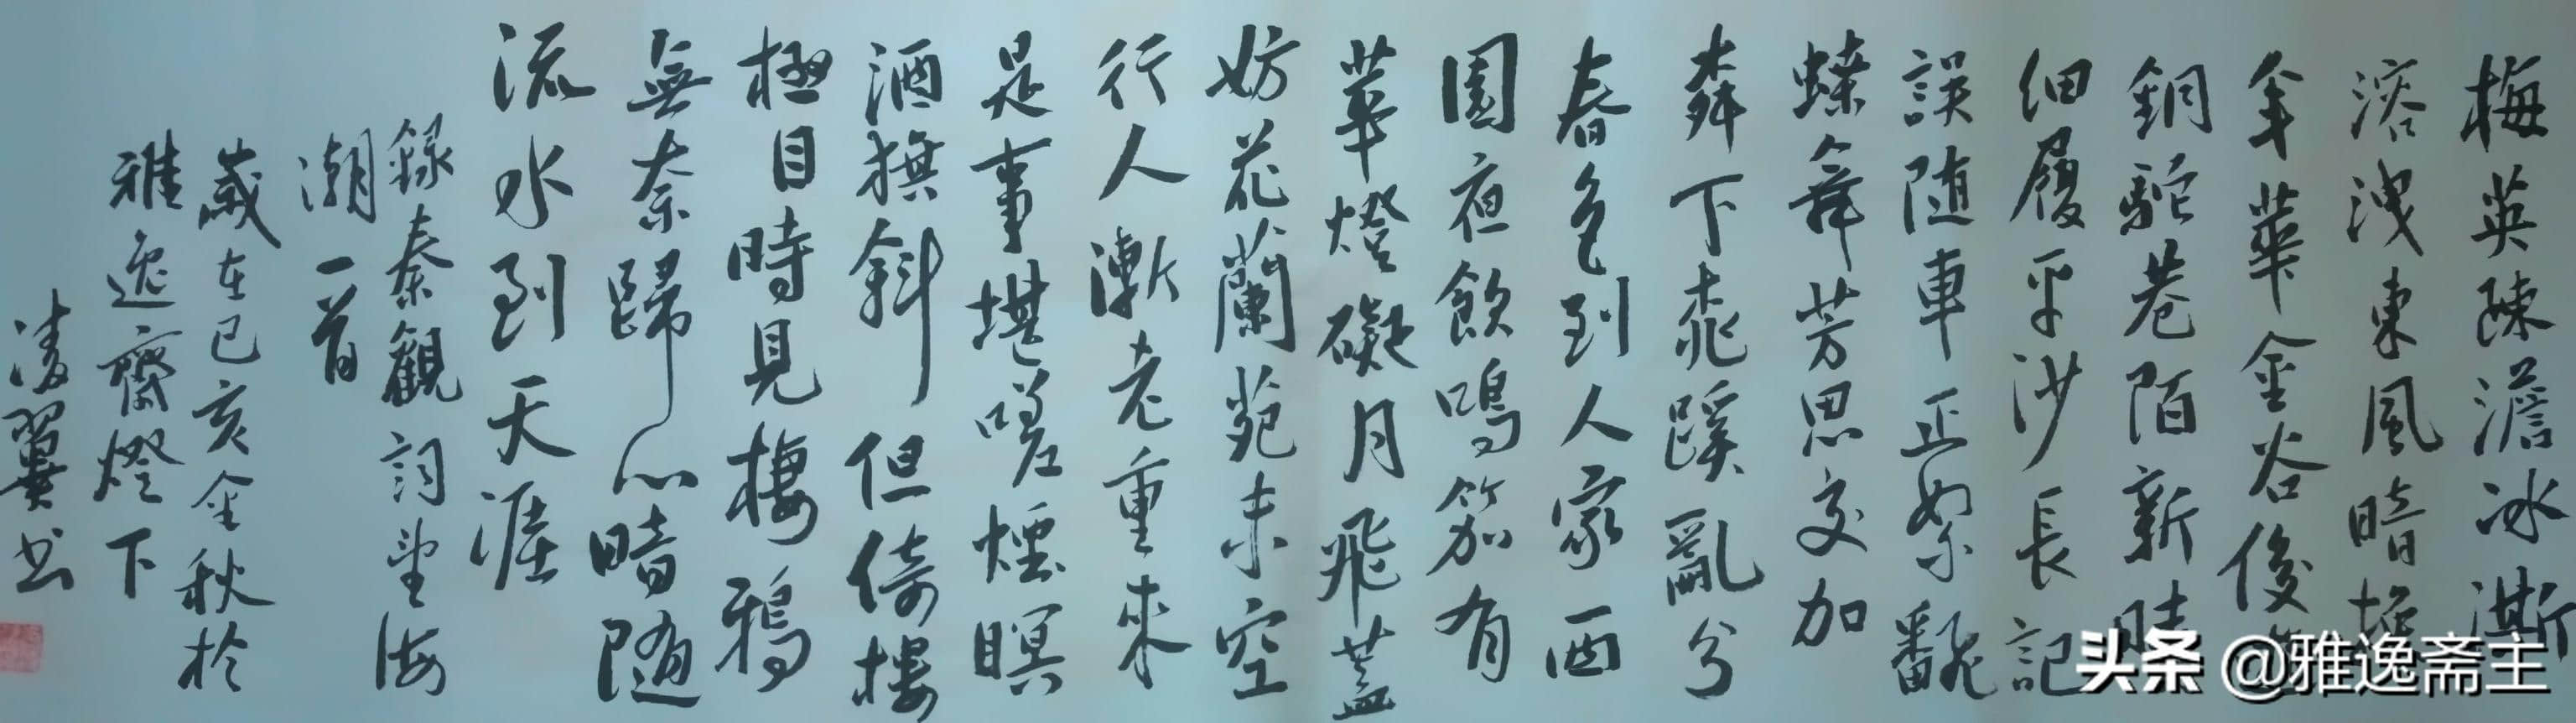 梅英疎澹冰澌
溶洩東風暗換
年華金谷俊
銅駝巷陌新晴
細履平沙長記
誤随車正絮翻
蝶舞芳思交加
桺下桃蹊亂分
春色到人家西
園夜飲鳴笳有
華燈礙月飛蓋
妨花蘭苑未空
行人漸老重來
是事堪嗟煙暝
酒旗斜但倚樓
極目時見棲鴉
無奈歸心暗隨
流水到天涯
録秦觀詞望海
潮一首
歲在己亥金秋於
雅逸齋燈下
凌翼书
头条 @雅逸斋主